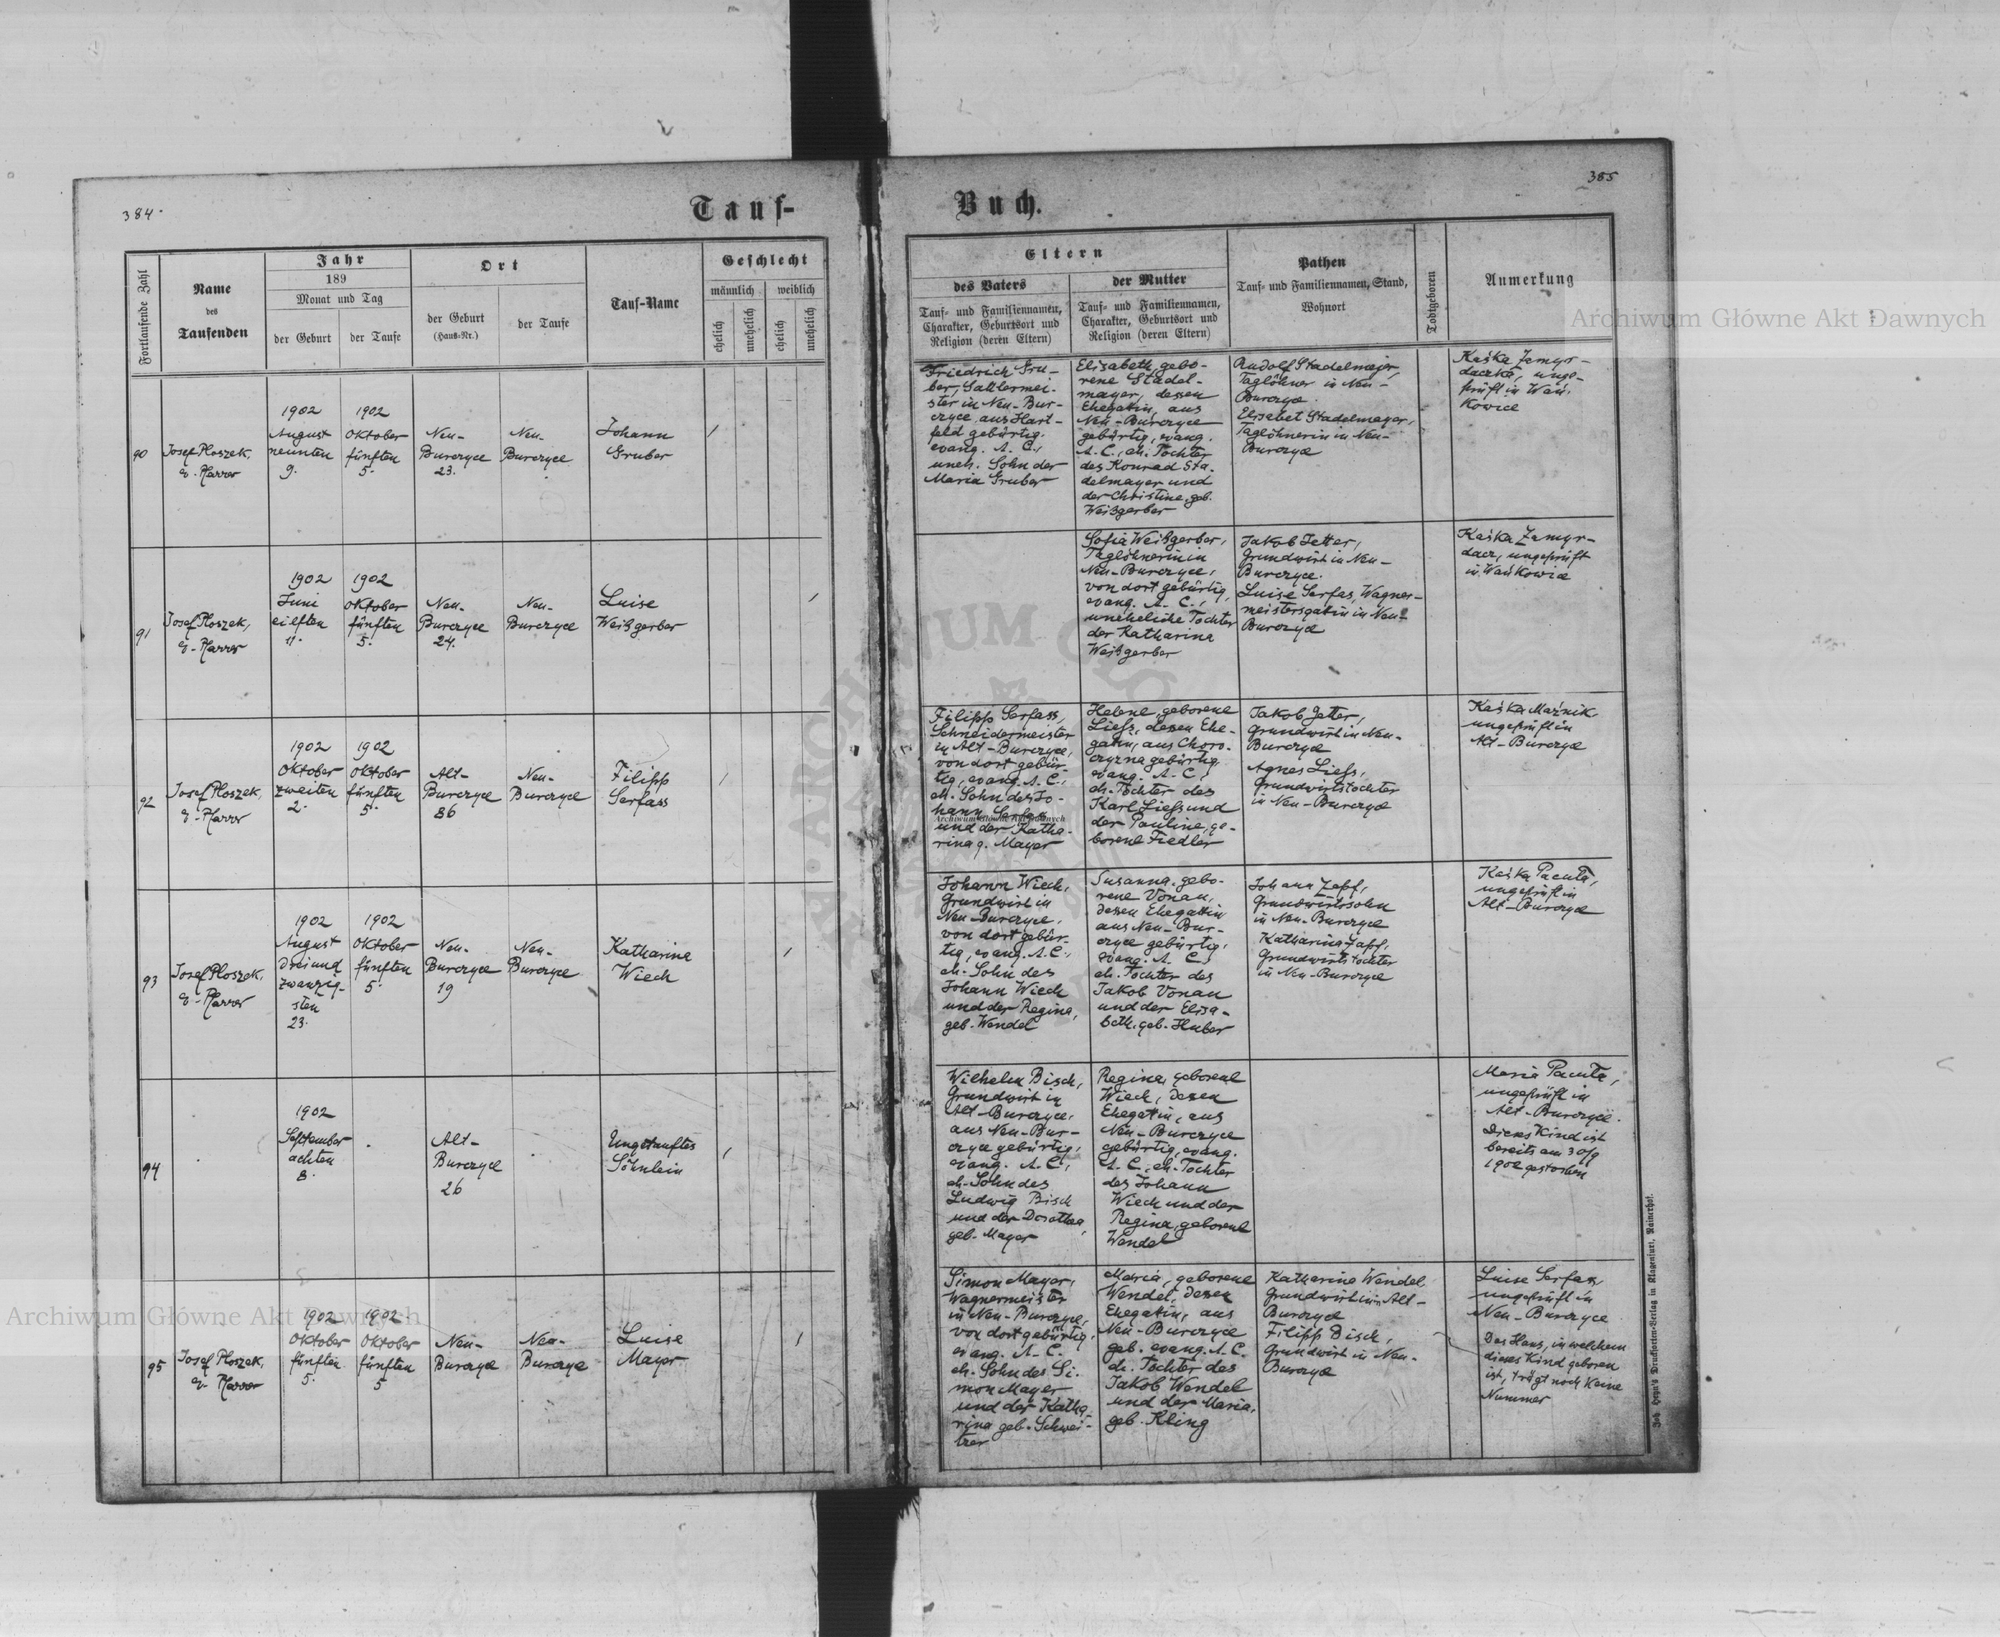 384.
Tauf-
Buch.
385
Fortlaufende Zahl
Name
des
Taufenden
Jahr
189
Monat und Tag
der Geburt
der Taufe
Ort
der Geburt
(Haus-Nr.)
der Taufe
Tauf-Name
Geschlecht
männlich
weiblich
ehelich
unehelich
ehelich
unehelich
Eltern
des Vaters
Tauf- und Familiennamen,
Charakter, Geburtsort und
Religion (deren Eltern)
der Mutter
Tauf- und Familiennamen,
Charakter, Geburtsort und
Religion (deren Eltern)
Pathen
Tauf- und Familiennamen, Stand,
Wohnort
Todtgeboren
Anmerkung
90
Josef Ploszek,
e. Pfarrer
1902
August
neunten
9.
1902
Oktober
fünften
5.
Neu-
Burczyce
23.
Neu-
Burczyce
Johann
Gruber
/
Friedrich Gru-
ber, Sattlermei-
ster in Neu-Bur-
czyce, aus Hart-
feld gebürtig,
evang. A. C.,
uneh. Sohn der
Maria Gruber
Elisabeth, gebo-
rene Stadel-
mayer, dessen
Ehegatin, aus
Neu-Burczyce
gebürtig, evang.
A. C., eh. Tochter
des Konrad Sta-
delmayer und
der Christine, geb.
Weißgerber
Rudolf Stadelmajer,
Taglöhner in Neu-
Burczyce.
Elisabet Stadelmayer,
Taglöhnerin in Neu-
Burczyce
Kaśka Zemyr-
daczka, unge-
prüft in Wań-
kowice
91
Josef Ploszek,
e. Pfarrer
1902
Juni
eilften
11.
1902
Oktober
fünften
5.
Neu-
Burczyce
24.
Neu-
Burczyce
Luise
Weißgerber
/
Sofia Weißgerber,
Taglöhnerin in
Neu-Burczyce,
von dort gebürtig,
evang. A. C.,
uneheliche Tochter
der Katharina
Weißgerber
Jakob Jetter,
Grundwirt in Neu-
Burczyce.
Luise Serfas, Wagner-
meistersgatin in Neu-
Burczyce
Kaśka Zemyr-
dacz, ungeprüft
in Wańkowice
92
Josef Ploszek,
e. Pfarrer
1902
Oktober
zweiten
2.
1902
Oktober
fünften
5.
Alt-
Burczyce
36
Neu-
Burczyce
Filipp
Serfass
/
Filipp Serfass,
Schneidermeister
in Alt-Burczyce,
von dort gebür-
tig, evang. A. C.,
eh. Sohn des Jo-
hann Serfass
und der Katha-
rina g. Mayer
Helene, geborene
Liefs, dessen Ehe-
gatin, aus Choro-
czyzna gebürtig,
evang. A. C.,
eh. Tochter des
Karl Liefs und
der Pauline, ge-
borene Fiedler
Jakob Jetter,
Grundwirt in Neu-
Burczyce
Agnes Liefs,
Grundwirtstochter
in Neu-Burczyce
Kaśka Maźnik
ungeprüft in
Alt-Burczyce
93
Josef Ploszek,
e. Pfarrer
1902
August
dreiund
zwanzig-
sten
23.
1902
Oktober
fünften
5.
Neu-
Burczyce
19
Neu-
Burczyce
Katharina
Wiech
/
Johann Wiech,
Grundwirt in
Neu-Burczyce,
von dort gebür-
tig, evang. A. C.,
eh. Sohn des
Johann Wiech
und der Regina,
geb. Wendel
Susanna, gebo-
rene Vonau,
dessen Ehegattin
aus Neu-Bur-
czyce gebürtig,
evang. A. C.,
eh. Tochter des
Jakob Vonau
und der Elisa-
beth, geb. Huber
Johann Zapf,
Grundwirtssohn
in Neu-Burczyce
Katharina Zapf,
Grundwirtstochter
in Neu-Burczyce
Kaśka Pacuła,
ungeprüft in
Alt-Burczyce
94
1902
September
achten
8.
Alt-
Burczyce
26
Ungetauftes
Söhnlein
/
Wilhelm Bisch,
Grundwirt in
Alt-Burczyce,
aus Neu-Bur-
czyce gebürtig,
evang. A. C.,
eh. Sohn des
Ludwig Bisch
und der Dorothea,
geb. Mayer
Regina, geborene
Wiech, dessen
Ehegatin, aus
Neu-Burczyce
gebürtig, evang.
A. C., eh. Tochter
des Johann
Wiech und der
Regina, geborene
Wendel
Maria Pacuła,
ungeprüft in
Alt-Burczyce.
Dieses Kind ist
bereits am 30/9
1902 gestorben
95
Josef Ploszek,
e. Pfarrer
1902
Oktober
fünften
5.
1902.
Oktober
fünften
5
Neu-
Burczyce
Neu-
Burczyce
Luise
Mayer
/
Simon Mayer,
Wagnermeister
in Neu-Burczyce,
von dort gebürtig,
evang. A. C.
eh. Sohn des Si-
mon Mayer
und der Katha-
rina geb. Schwei-
tzer
Maria, geborene
Wendel, dessen
Ehegatin, aus
Neu-Burczyce
geb. evang. A. C.
eh. Tochter des
Jakob Wendel
und der Maria,
geb. Kling
Katharina Wendel
Grundwirtin in Alt-
Burczyce
Filipp Bisch,
Grundwirt in Neu-
Burczyce
Luise Serfass
ungeprüft in
Neu-Burczyce
Das Haus, in welchem
dieses Kind geboren
ist, trägt noch keine
Nummer
Joh. Heyn's Drucksorten-Verlag in Klagenfurt, Rainerhof.
Archiwum Główne Akt Dawnych
Archiwum Główne Akt Dawnych
Archiwum Główne Akt Dawnych